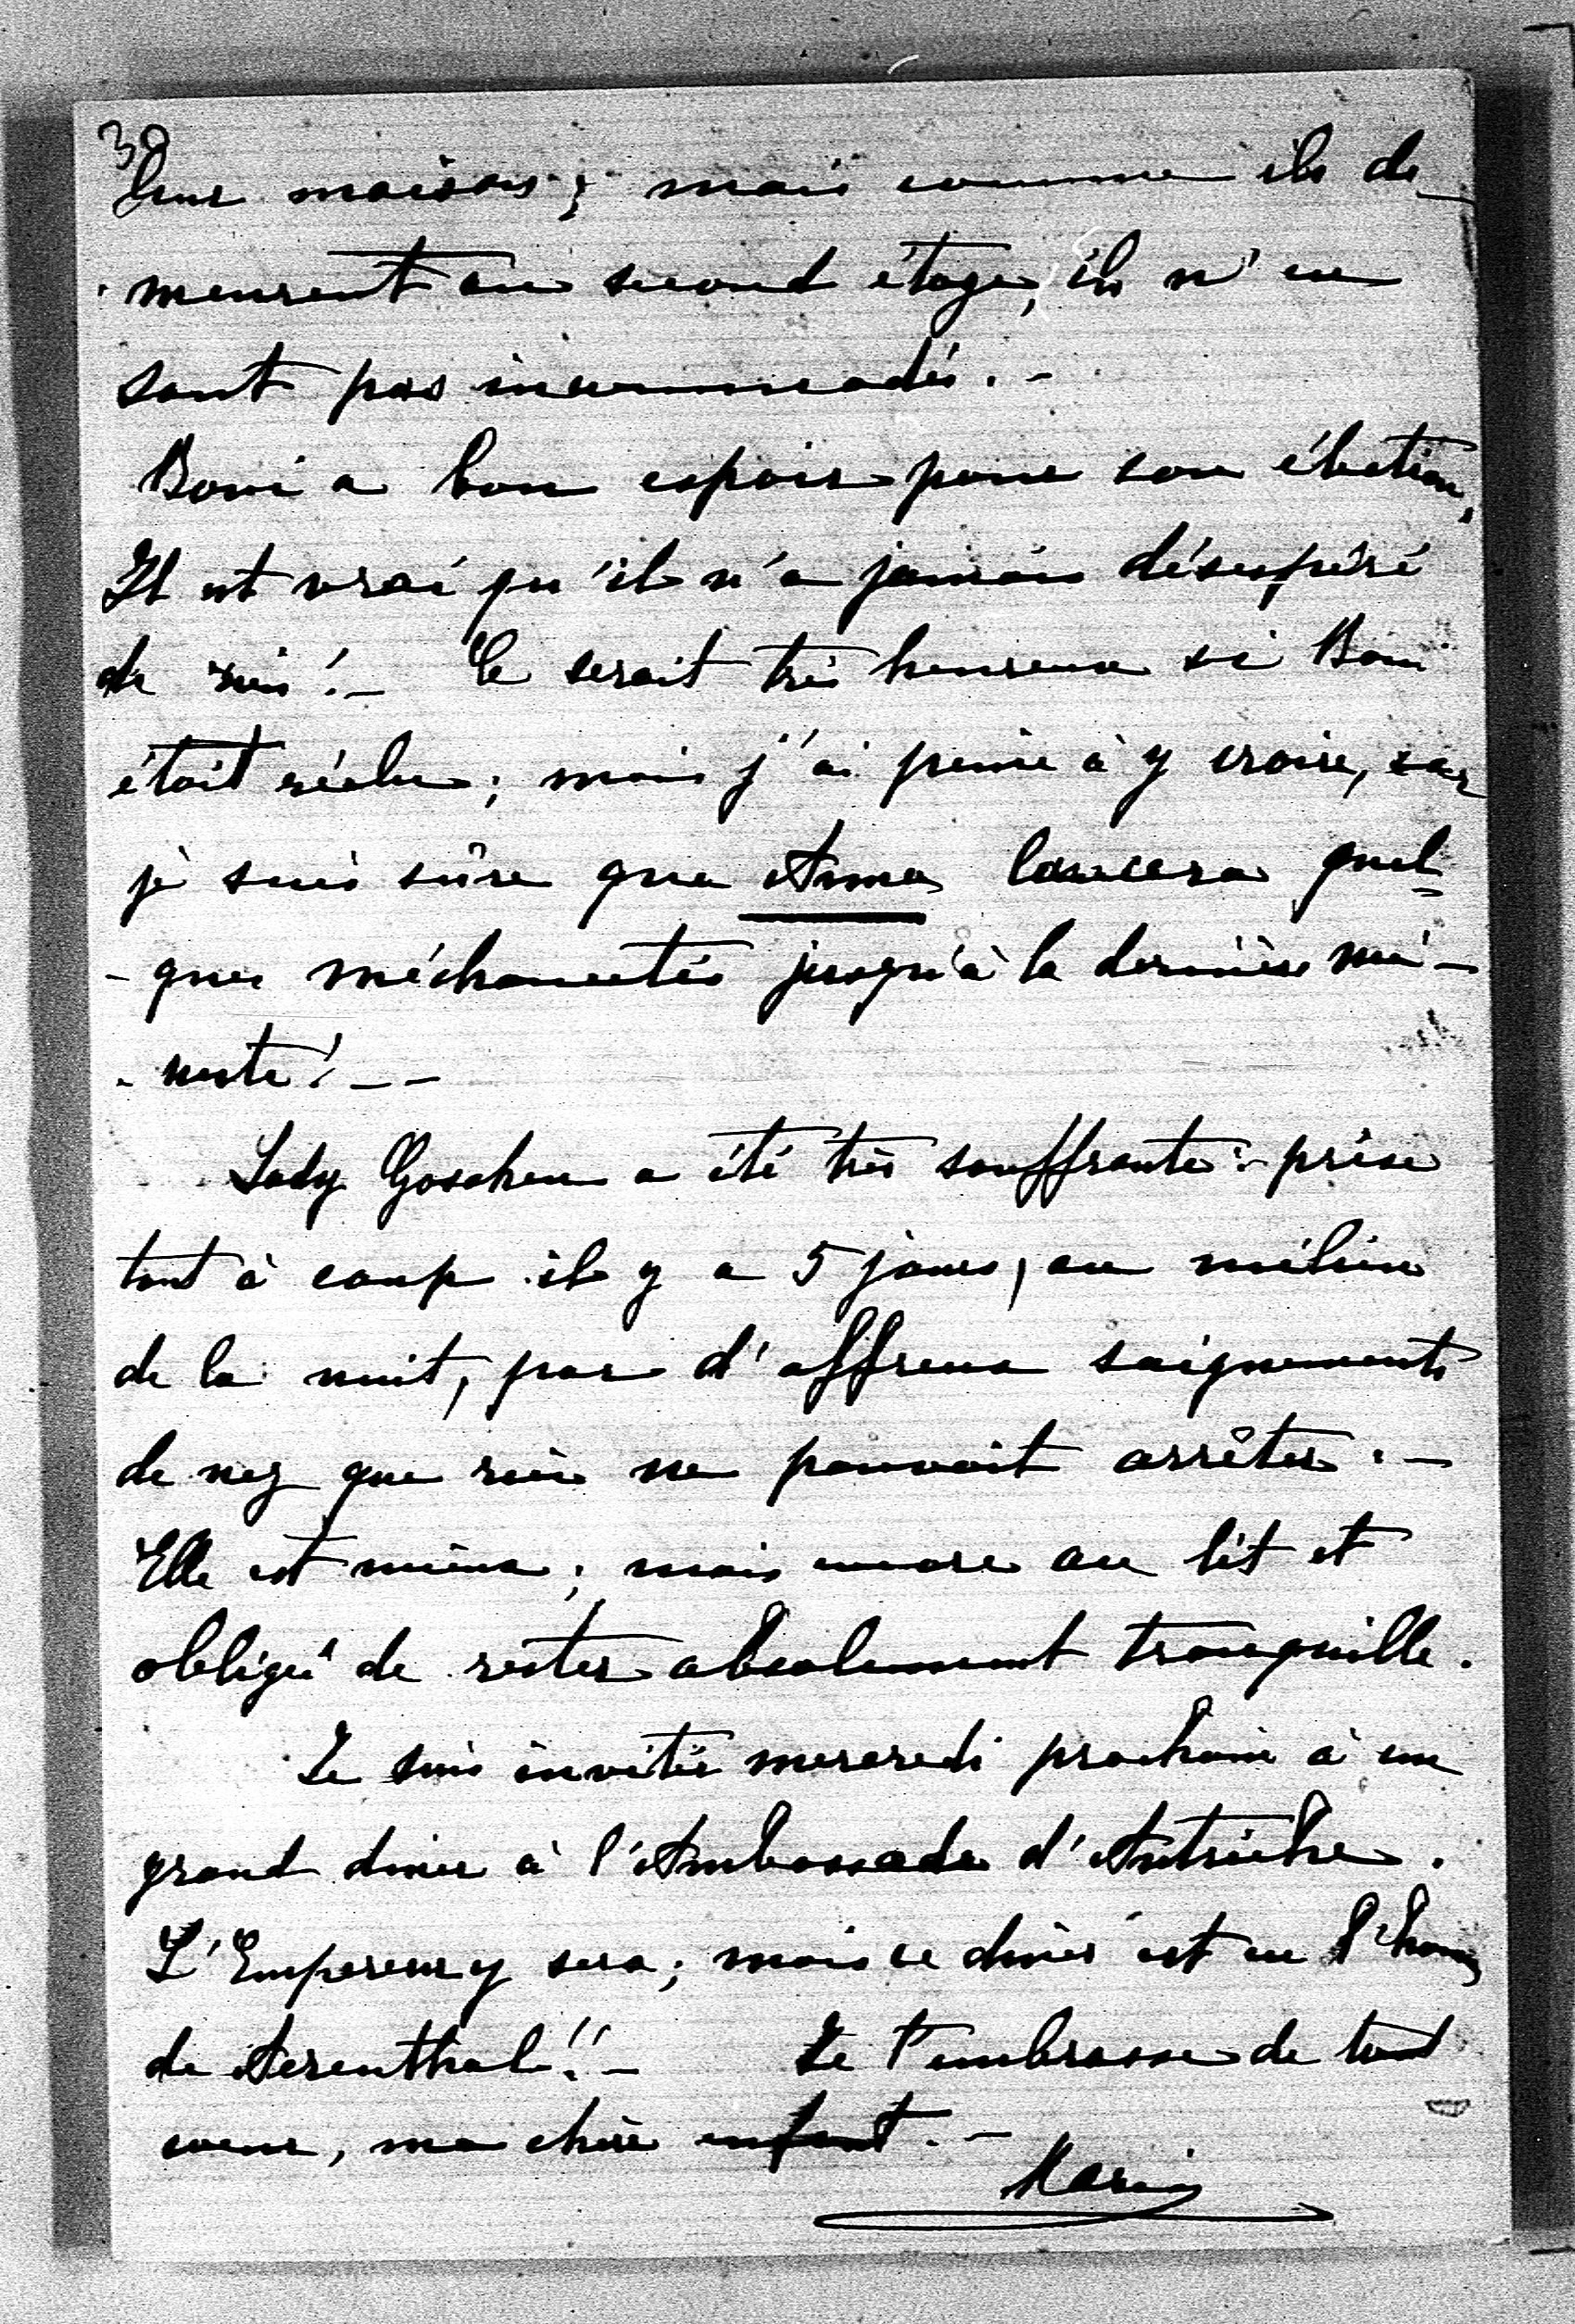 38
leur maison ; mais comme ils de-
-meurent au second étage, ils n'en
sont pas incommodés. -
Boni a bon espoir pour son élection,
Il est vrai qu'il n'a jamais désespéré
de rien ! - Ce serait très heureux si Boni
était réélu ; mais j'ai peine à y croire, car
je suis sûre que Anna lancera quel-
-ques méchancetés jusqu'à la dernière mi-
-nute ! - -
Lady Goschen a été très souffrante : - prise
tout à coup il y a 5 jours, au milieu
de la nuit, par d'affreux saignements
de nez que rien ne pouvait arrêter. -
Elle est mieux ; mais encore au lit et
obligée de rester absolument tranquille.
Je suis invitée mercredi prochain à un
grand diner à l'Ambassade d'Autriche.
L'Empereur y sera ; mais ce diner est en l'honr
de Aerenthal !! - Je t'embrasse de tout
cœur, ma chère enfant. -
Marie